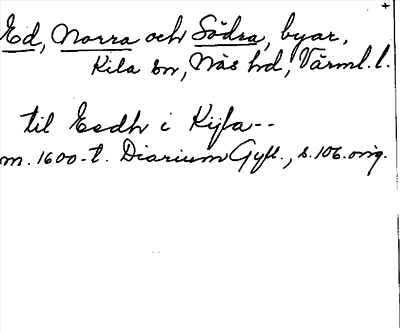 Ed, Norra och Södra, byar,
Kila sn, Näs hd, Värml. l.
til Eedh i Kijla--
m. 1600-t. Diarium Gyll., s. 106. orig.